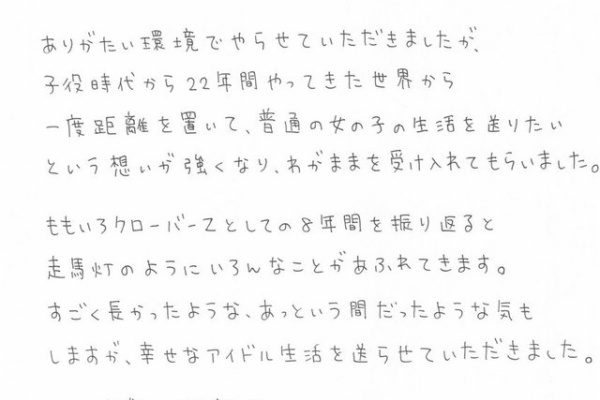 ありがたい環境でやらせていただきましたが、
子役時代から22年間やってきた世界から
一度距離を置いて、普通の女の子の生活を送りたい
という想いが強くなり、わがままを受け入れてもらいました。
ももいろクローバーZとしての8年間を振り返ると
走馬灯のようにいろんなことがあふれてきます。
すごく長かったような、あっという間だったような気も
しますが、幸せなアイドル生活を送らせていただきました。